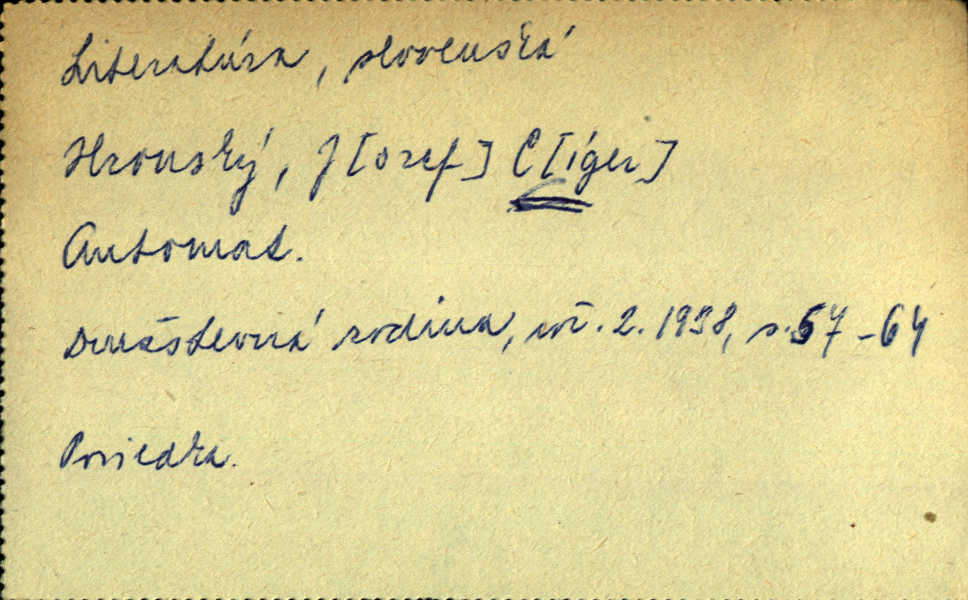 Literatúra, slovenská
Hronský, J[ozef] C[íger]
Automat.
Družstevná rodina, roč. 2. 1938, s. 57-64
Poviedka.